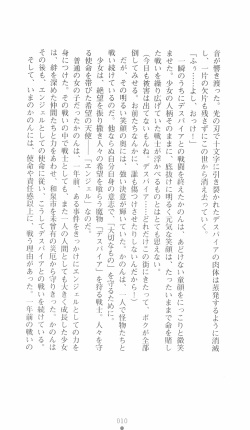 音が響き渡った。光の刃で十文字に引き裂かれたデスパイアの肉体は蒸発するように消滅
し、一片の欠片も残さずにこの世から消え去っていく。
「ふぅ……よし、おっけ！」
瞬のうちにデスパイアとの戦闘を終えたかのんは、あどけない童顔をにこっと微笑
ませた。少女の人柄そのものを表すような底抜けに明るく元気な笑顔は、たったいままで命を賭し
た戦いを繰り広げていた戦士が浮かべるものとはとても思えない。
（今日も被害は出てないもんね。デスパイア……どれだけこの街にきたって、ボクが全部
倒してみせる。お前たちなんかに、誰も傷つけさせたりしないんだから！）
その明るい笑顔の奥には、強い決意が輝いていた。かのんは、一人で怪物たちと
戦い続けているのだ。他ならぬ自分自身の意志で、『大切なもの』を守るために。
少女は、絶望を振り撒き人々の希望を喰らう魔物『デスパイア』と戦い、人々を守
る使命を帯びた希望の天使――『エンジェル』なのだ。
普通の女の子だったかのんは一年前、ある事件をきっかけにエンジェルとしての力を
身につけた。その戦いの中で戦士としても、また一人の人間としても大きく成長した少女
は、絆を深めた仲間たちと力をあわせ、和泉市を未曾有の災厄から守り抜いた。かのんは
そして、いまもエンジェルの使命に従って、こうしてデスパイアとの戦いを続けている。
そして、いまのかのんには、使命や責任感以上に、戦う理由があった。一年前の戦いの
010